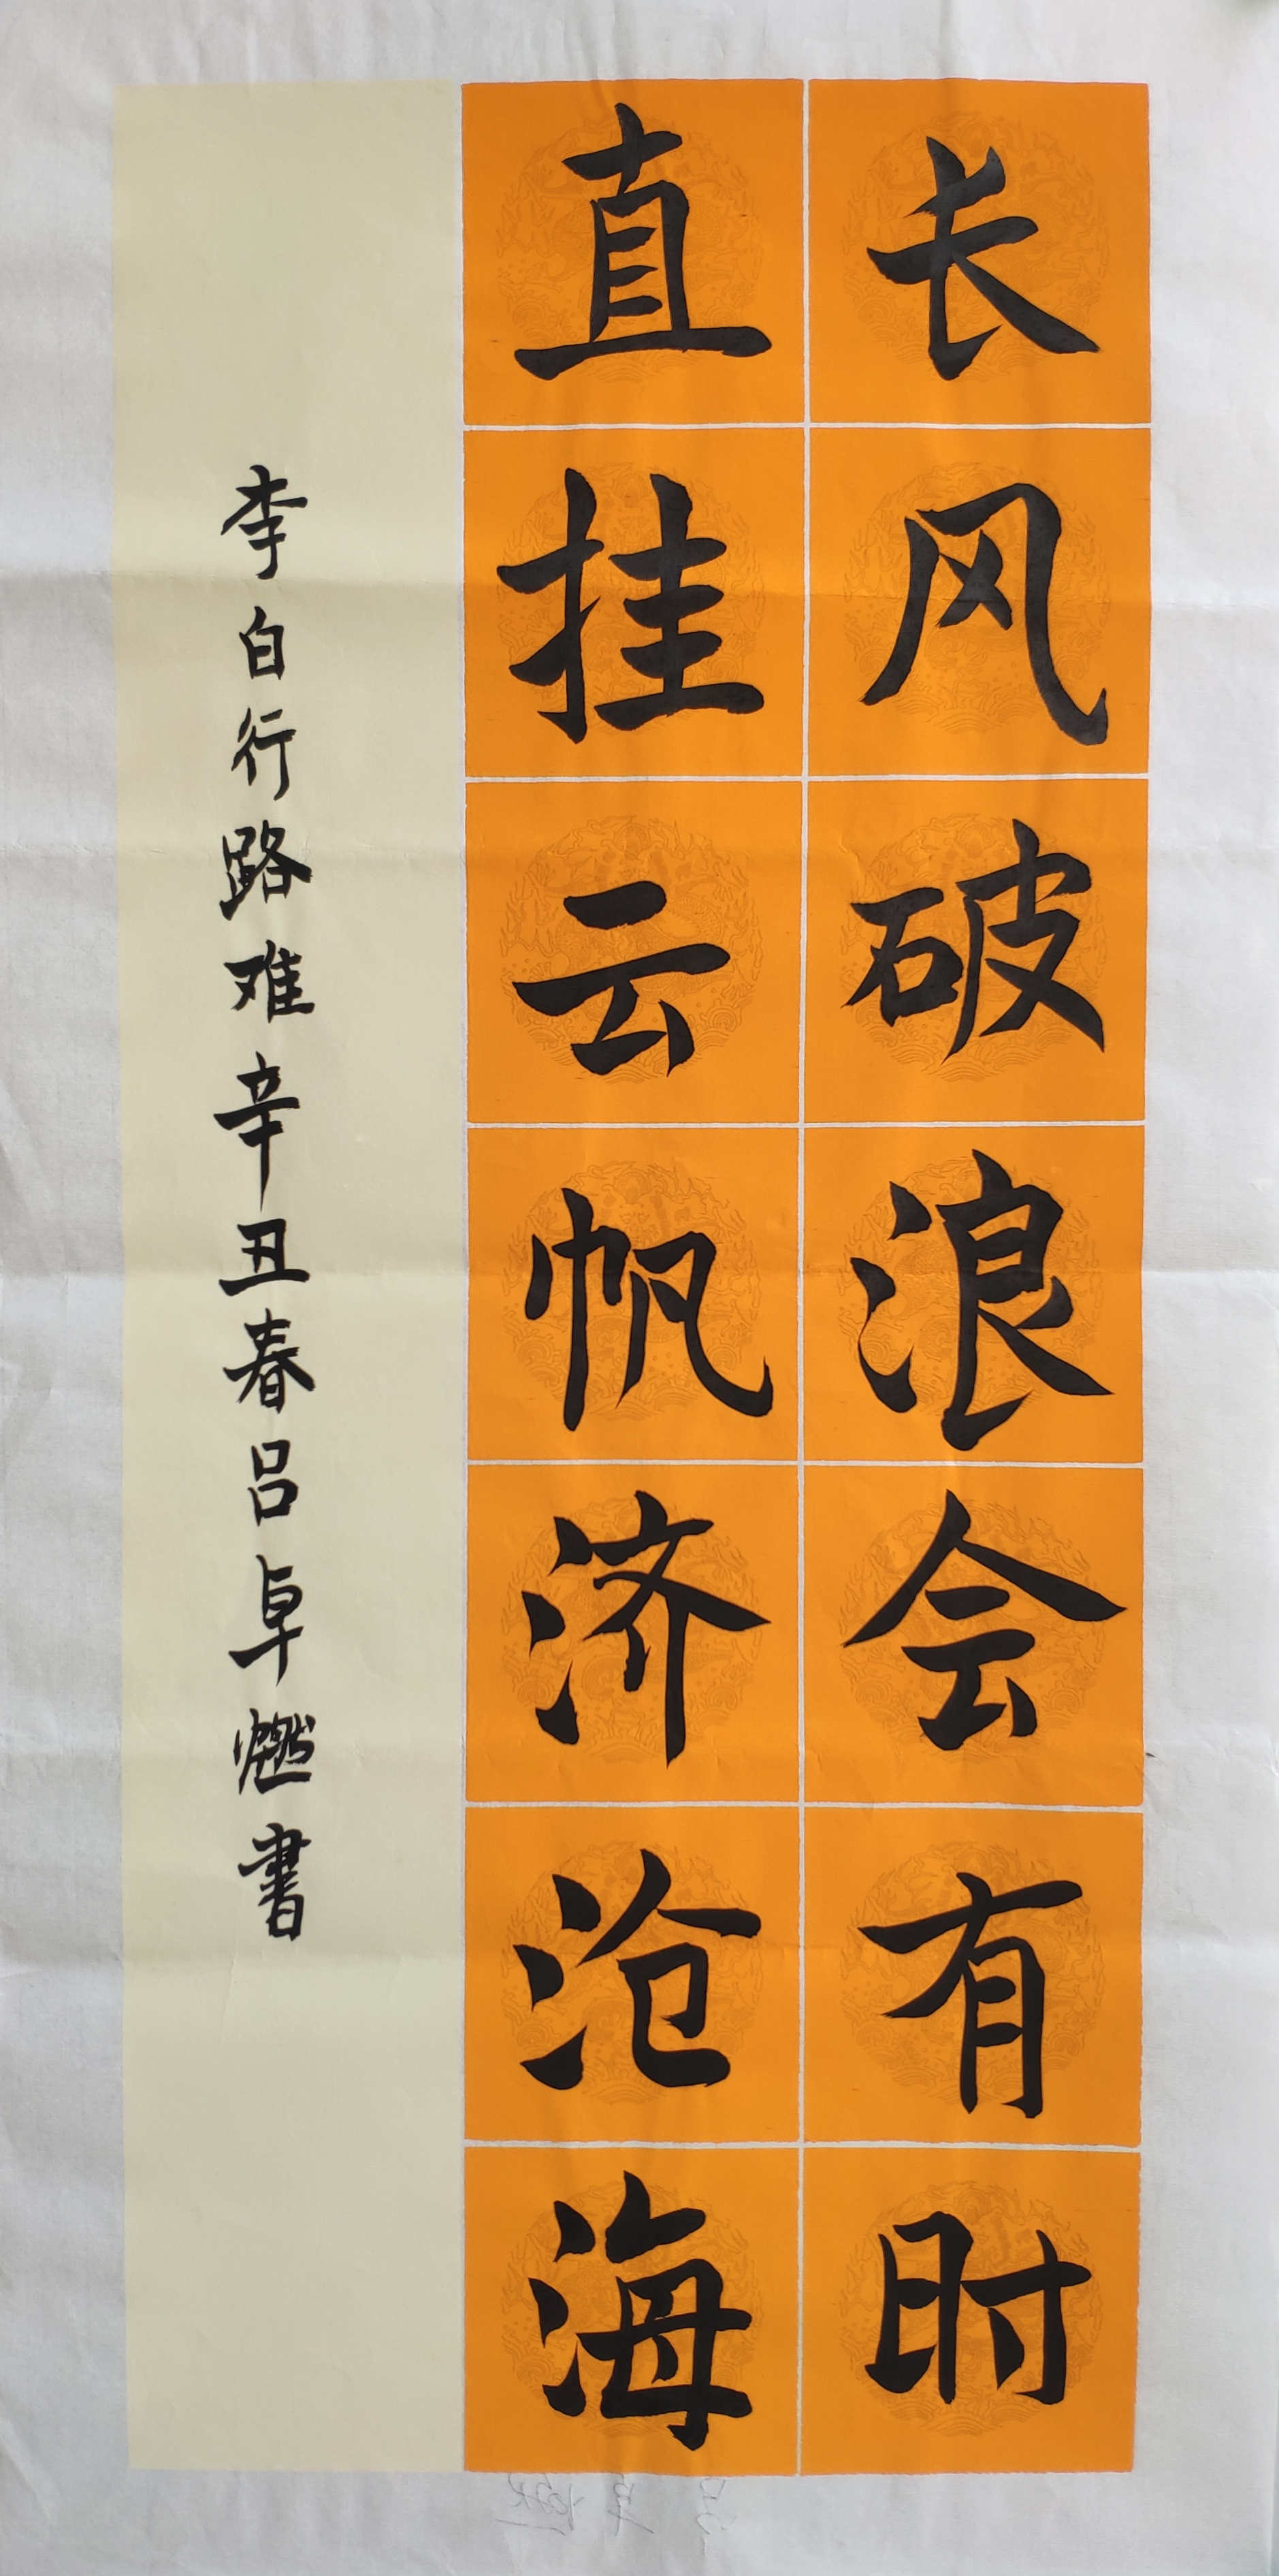 长风破浪会有时
直挂云帆济沧海
李白行路难辛丑春吕卓燃書